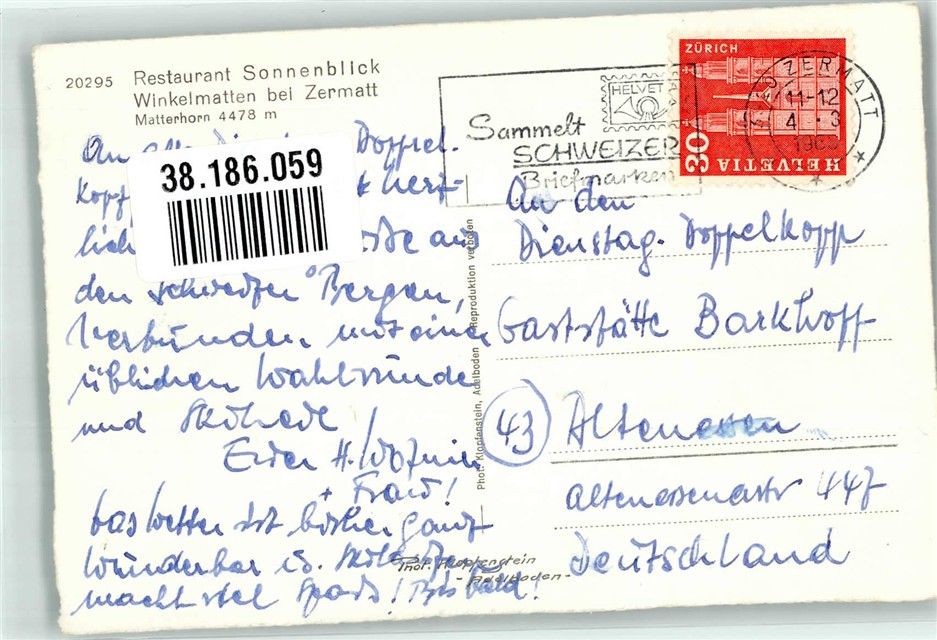 20295 Restaurant Sonnenblick
Winkelmatten bei Zermatt
Matterhorn 4478 m
ZÜRICH
30
HELVETIA
ZERMATT
11-12
4 3
HELVETIA
Sammelt
SCHWEIZER
Briefmarken
38.186.059
An Doppel-
kopf herz-
lich aus
den Bergen,
Verbunden mit einer
üblichen
und
Euer H.
+ Frau!
Das Wetter ist bisher ganz
wunderbar u.
macht viel Spass! Bis bald!
Phot. Klopfenstein, Adelboden Reproduktion verboten
Phot. Klopfenstein
- Adelboden -
An den
Dienstag. Doppelkopp
Gaststätte Barkhoff
43 Altenessen
Altenessenerstr 447
Deutschland